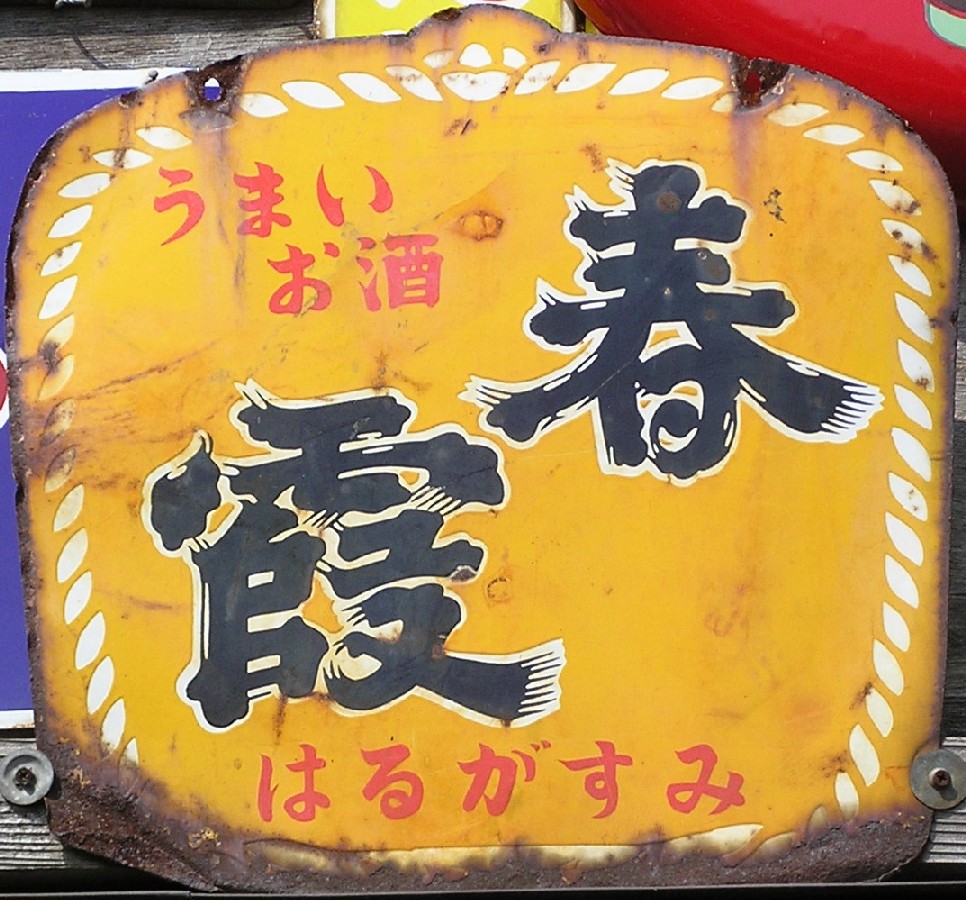 うまい
お酒
春
霞
はるがすみ